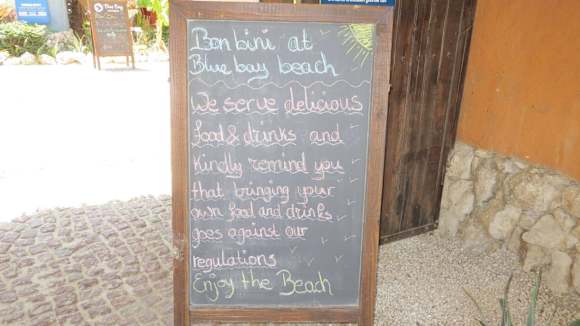 Bon bini at
Blue bay beach
We serve delicious
food & drinks and
Kindly remind you
that bringing your
own food and drinks
goes against our
regulations
Enjoy the Beach